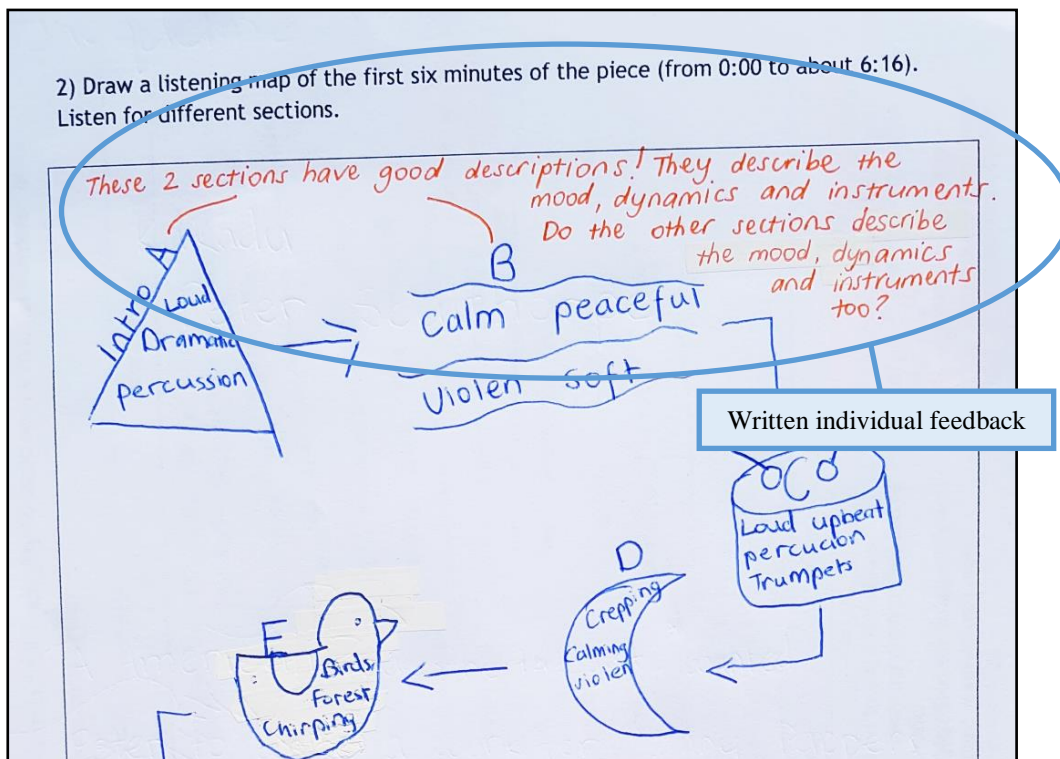 2) Draw a listening map of the first six minutes of the piece (from 0:00 to about 6:16).
Listen for different sections.
These 2 sections have good descriptions! They describe the
mood, dynamics and instruments.
Do the other sections describe
the mood, dynamics
and instruments
too?
Intro A
Loud
Dramatic
percussion
B
Calm peaceful
Violen soft
Written individual feedback
C
Loud upbeat
percucion
Trumpets
D
Crepping
Calming
violen
E
Birds
Forest
Chirping